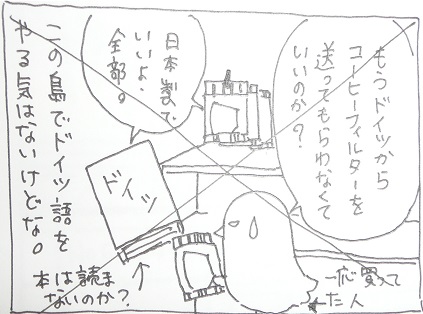 もうドイツから
コーヒーフィルターを
送ってもらわなくて
いいのか？
日本製で
いいよ、
全部。
この島でドイツ語を
やる気はないけどな。
ドイツ
本は読ま
ないのか？
一応買って
きた人